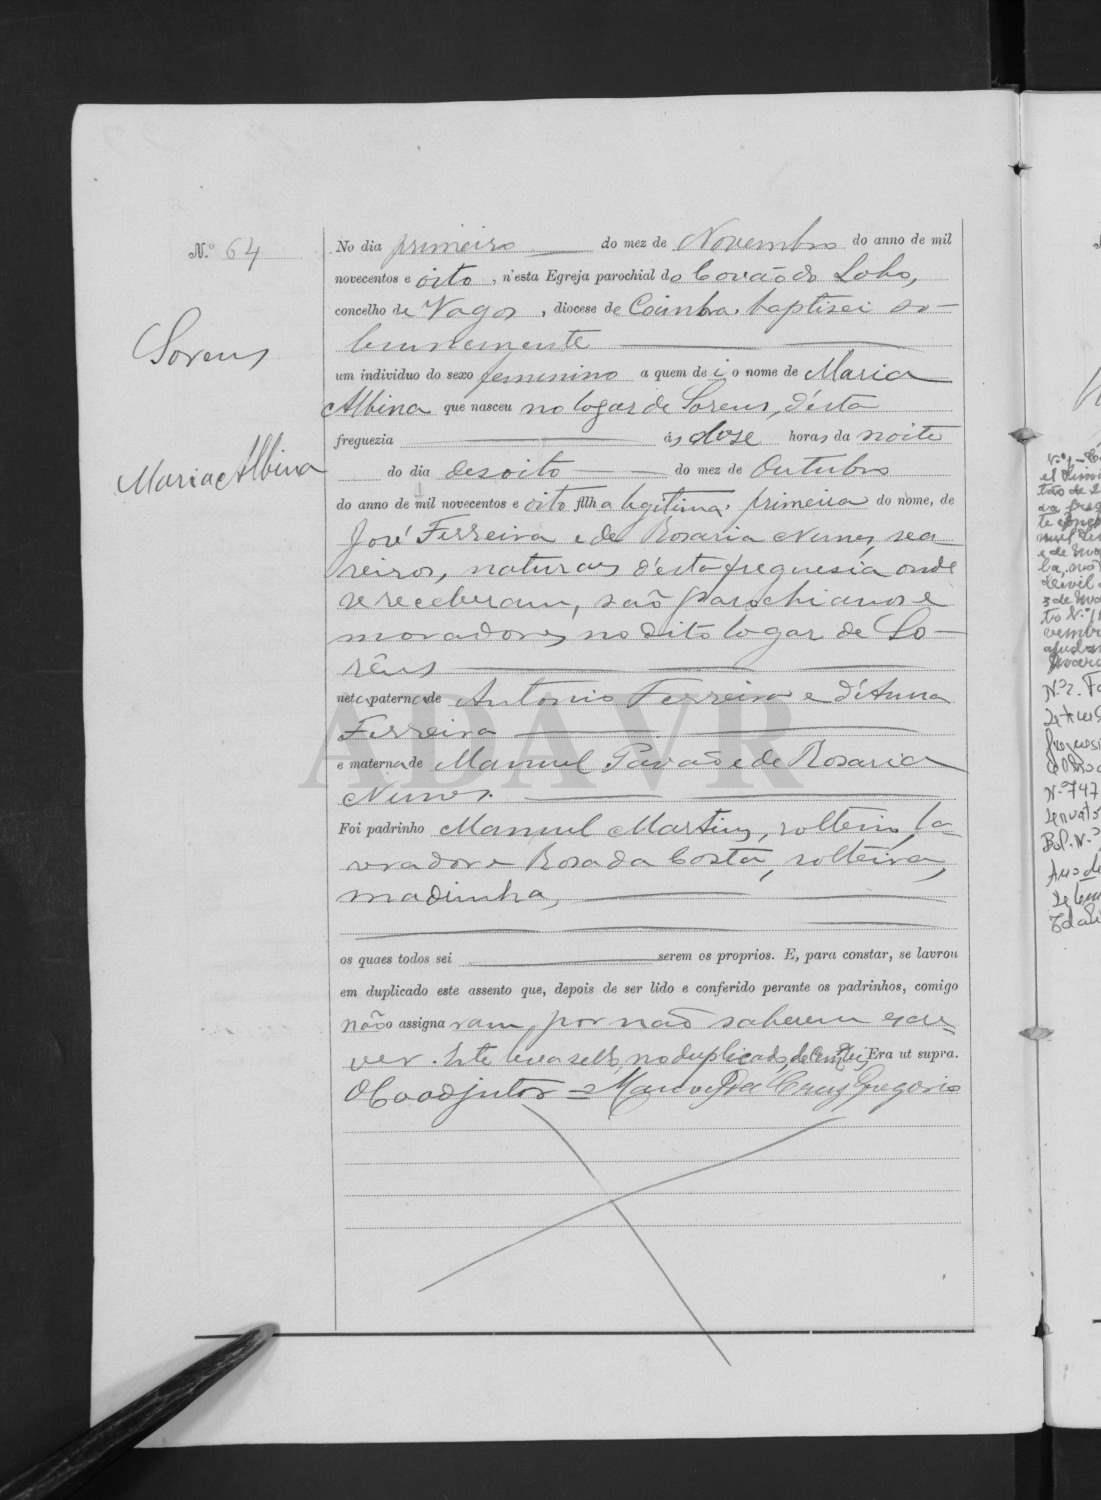 N.º 64
Soreus
Maria Albina
No dia primeiro do mez de Novembro do anno de mil
novecentos e oito, n'esta Egreja parochial do Covão do Lobo,
concelho de Vagos, diocese de Coimbra, baptisei so-
lemnemente
um individuo do sexo femenino a quem dei o nome de Maria
Albina que nasceu no logar de Soreus, d'esta
freguezia ás dose horas da noite
do dia desoito do mez de Outubro
do anno de mil novecentos e oito filha legitima, primeira do nome, de
José Ferreira e de Rosaria Nunes, sea-
reiros, naturaes d'esta freguesia onde
se receberam, são parochianos e
moradores no dito logar de So-
rêus
neta paterna de Antonio Ferreira e d'Anna
Ferreira
e materna de Manuel Pavão e de Rosaria
Nunes.
Foi padrinho Manuel Martins, solteiro, la-
vrador e Rosa da Costa, solteira,
madrinha,
os quaes todos sei serem os proprios. E, para constar, se lavrou
em duplicado este assento que, depois de ser lido e conferido perante os padrinhos, comigo
não o assignaram, por não saberem escre-
ver. Este leva sello, no duplicado, de Era ut supra.
O Coadjutor = Manuel da Cruz Gregorio
ADAVR